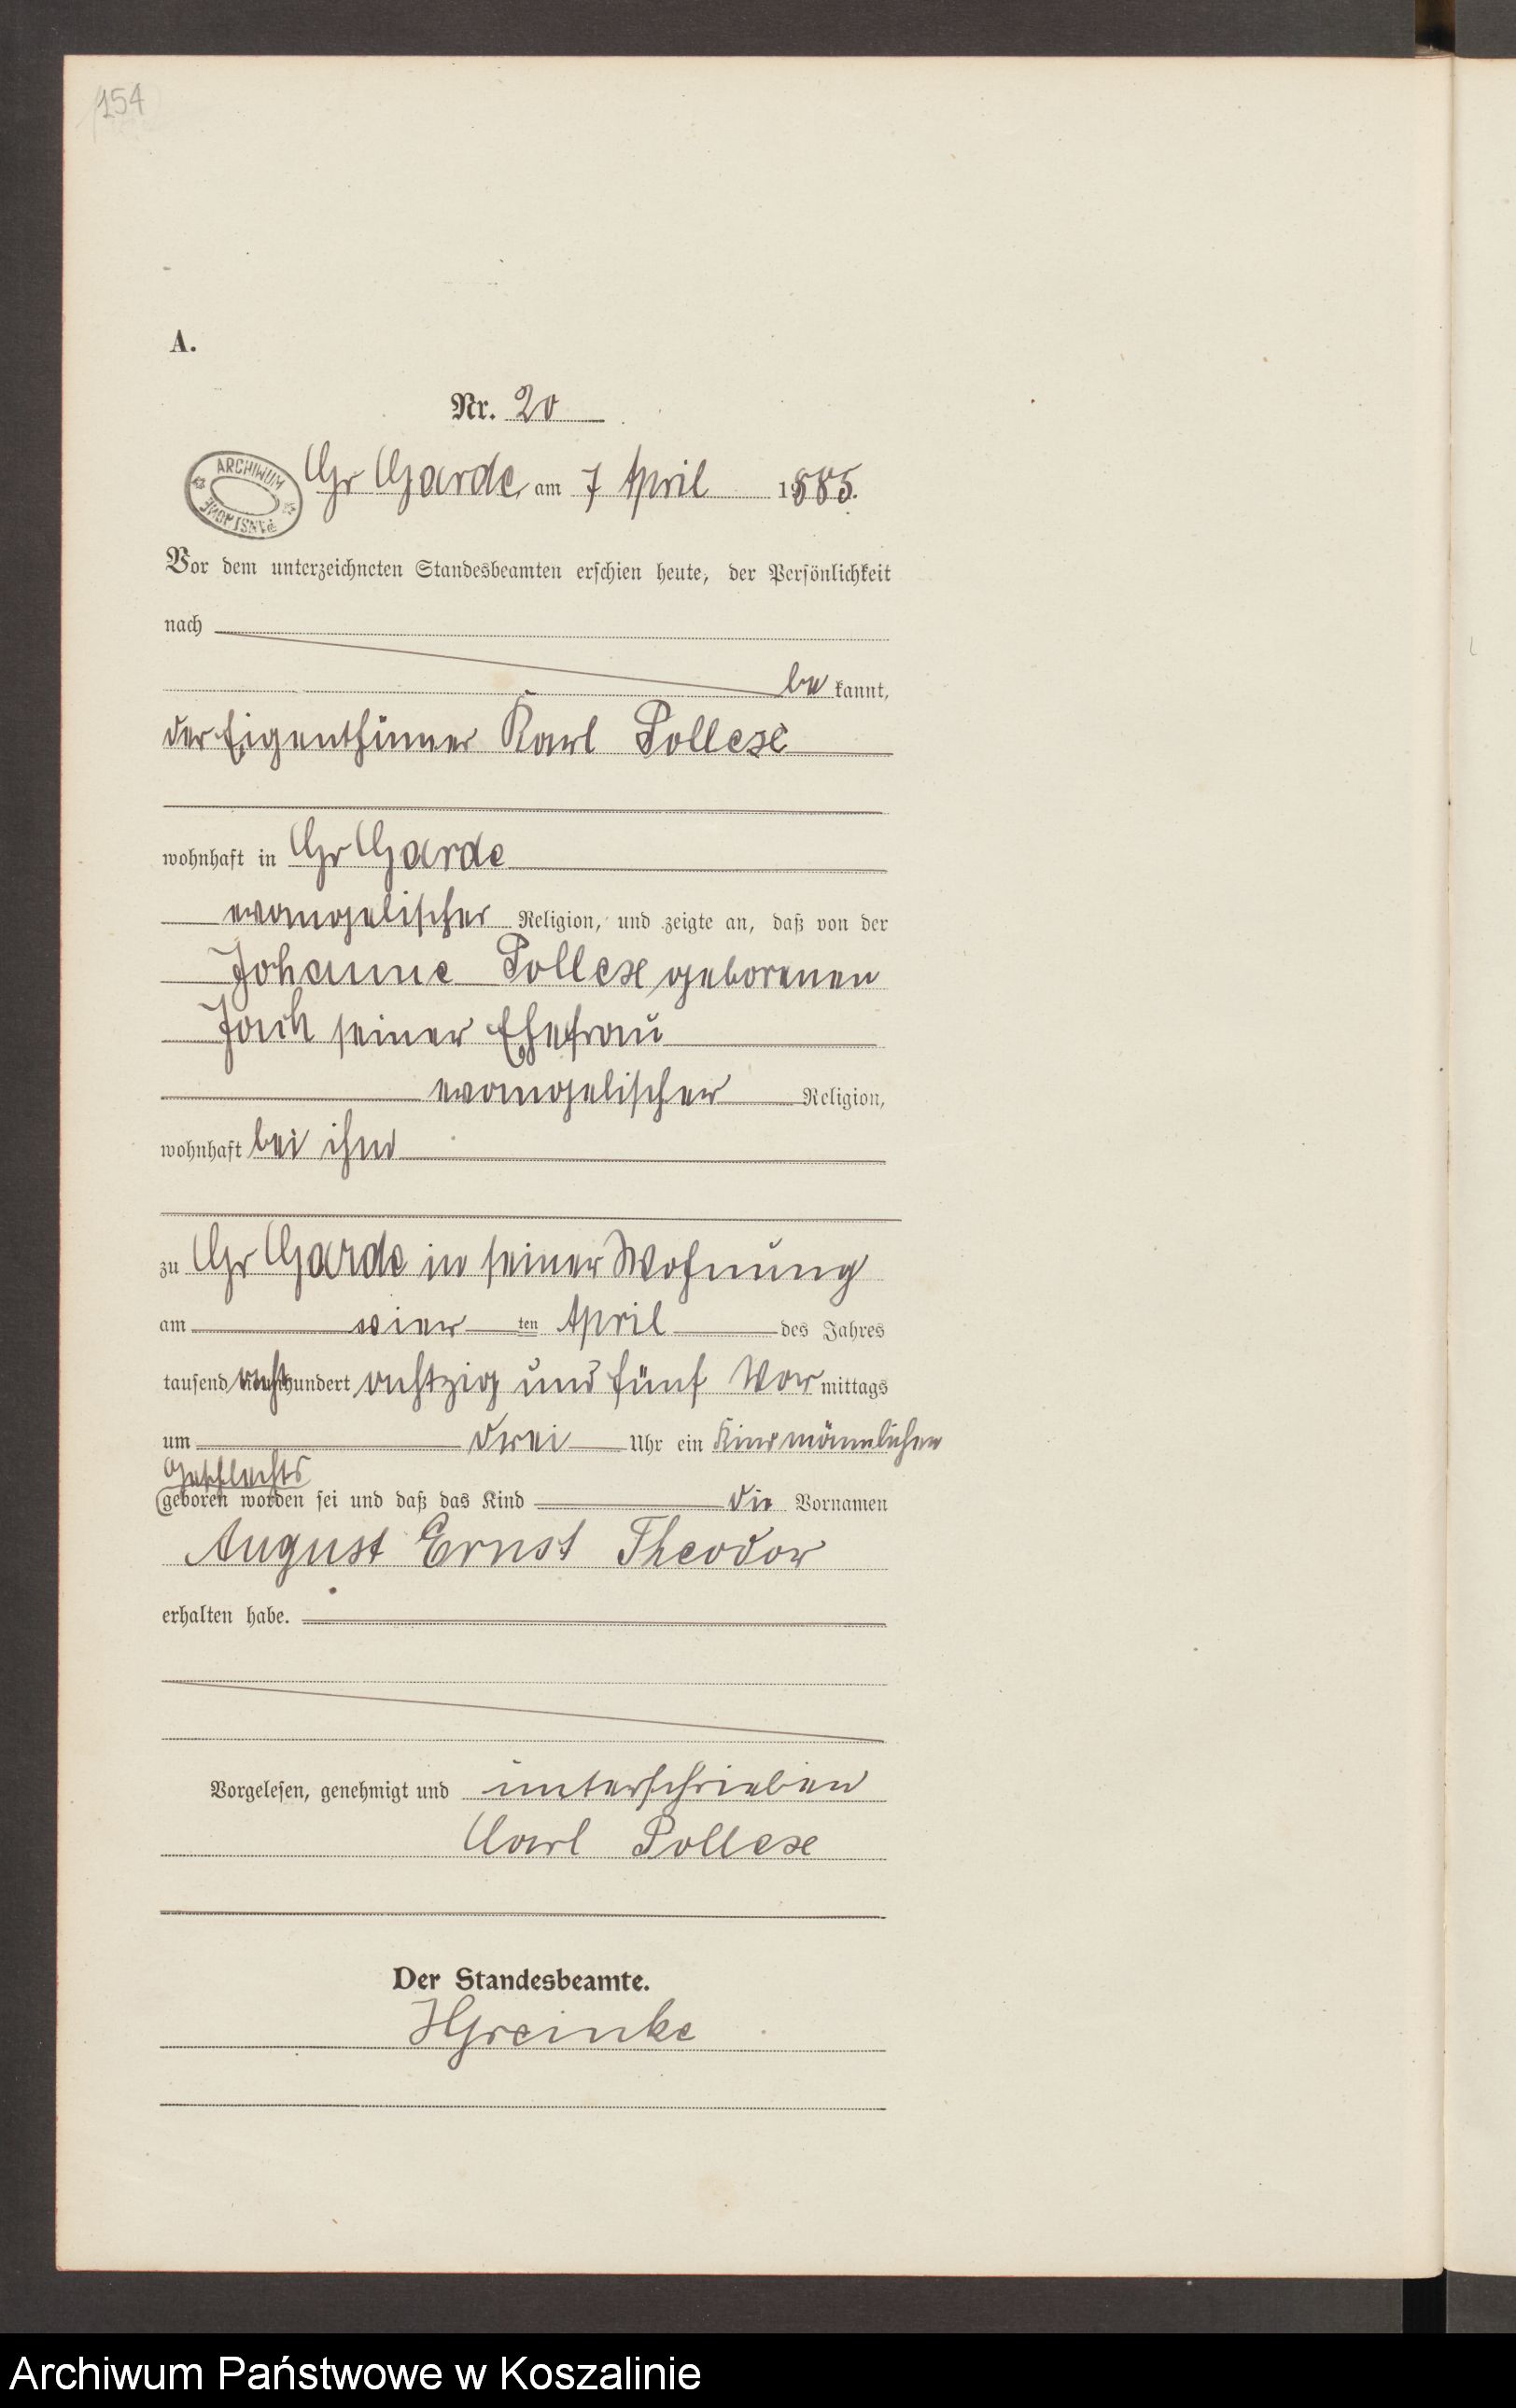 154
A.
Nr. 20
ARCHIWUM PAŃSTWOWE
Gr Garde, am 7 April 1885.
Vor dem unterzeichneten Standesbeamten erschien heute, der Persönlichkeit
nach
be kannt,
der Eigenthümer Karl Pollexe
wohnhaft in Gr Garde
evangelischer Religion, und zeigte an, daß von der
Johanne Pollexe geborenen
Jach seiner Ehefrau
evangelischer Religion,
wohnhaft bei ihm
zu Gr Garde in seiner Wohnung
am vier ten April des Jahres
tausend acht hundert achtzig und fünf Vor mittags
um drei Uhr ein Kind männlichen
Geschlechts
geboren worden sei und daß das Kind die Vornamen
August Ernst Theodor
erhalten habe.
Vorgelesen, genehmigt und unterschrieben
Carl Pollexe
Der Standesbeamte.
HGreinke
Archiwum Państwowe w Koszalinie